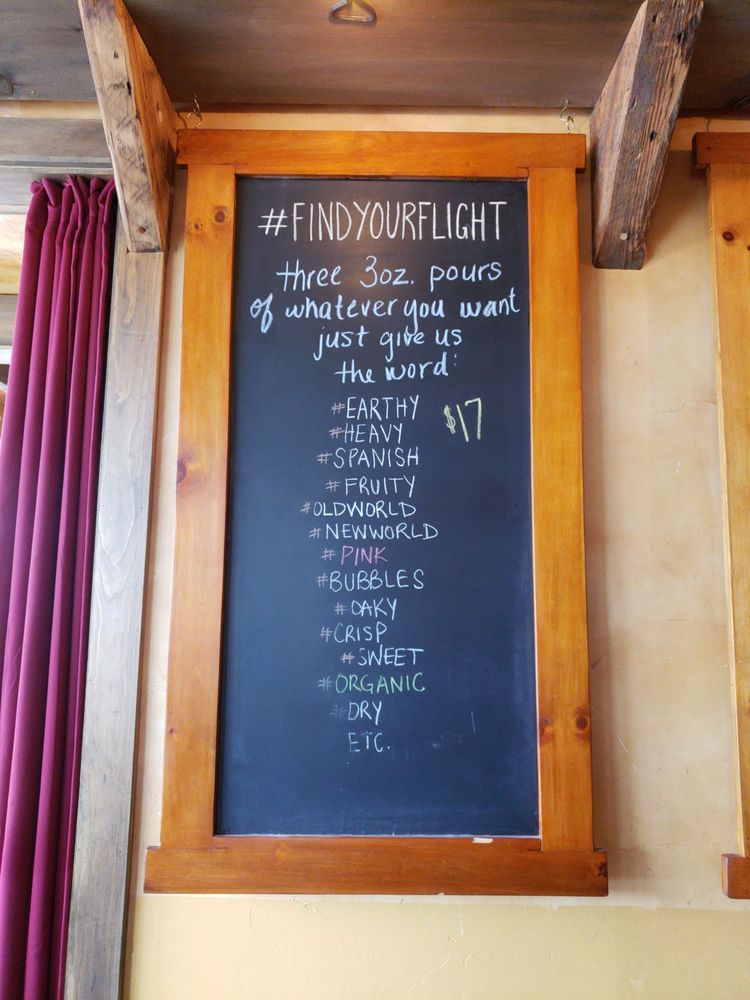 #FINDYOURFLIGHT
three 3oz. pours
of whatever you want
just give us
the word:
#EARTHY
$17
#HEAVY
#SPANISH
#FRUITY
#OLDWORLD
#NEWWORLD
#PINK
#BUBBLES
#OAKY
#CRISP
#SWEET
#ORGANIC
#DRY
ETC.